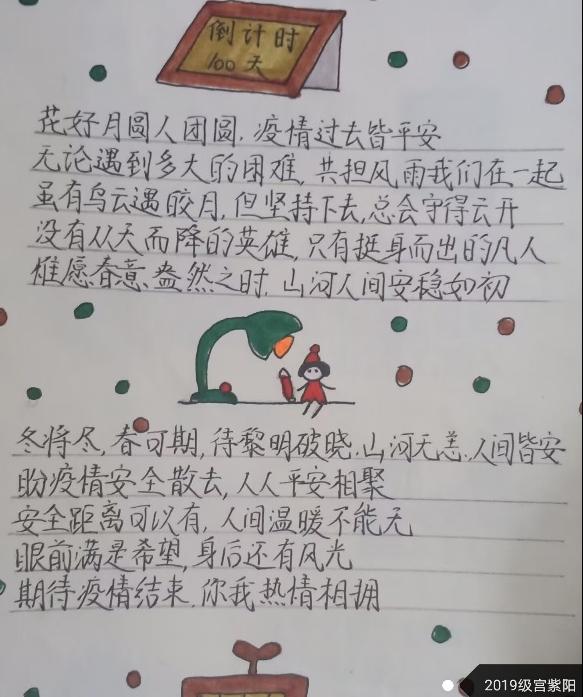 倒计时
100天
花好月圆人团圆，疫情过去皆平安
无论遇到多大的困难，共担风雨我们在一起
虽有乌云遇皎月，但坚持下去，总会守得云开
没有从天而降的英雄，只有挺身而出的凡人
惟愿春意盎然之时，山河人间安稳如初
冬将尽，春可期，待黎明破晓，山河无恙，人间皆安
盼疫情安全散去，人人平安相聚
安全距离可以有，人间温暖不能无
眼前满是希望，身后还有风光
期待疫情结束，你我热情相拥
2019级宫紫阳